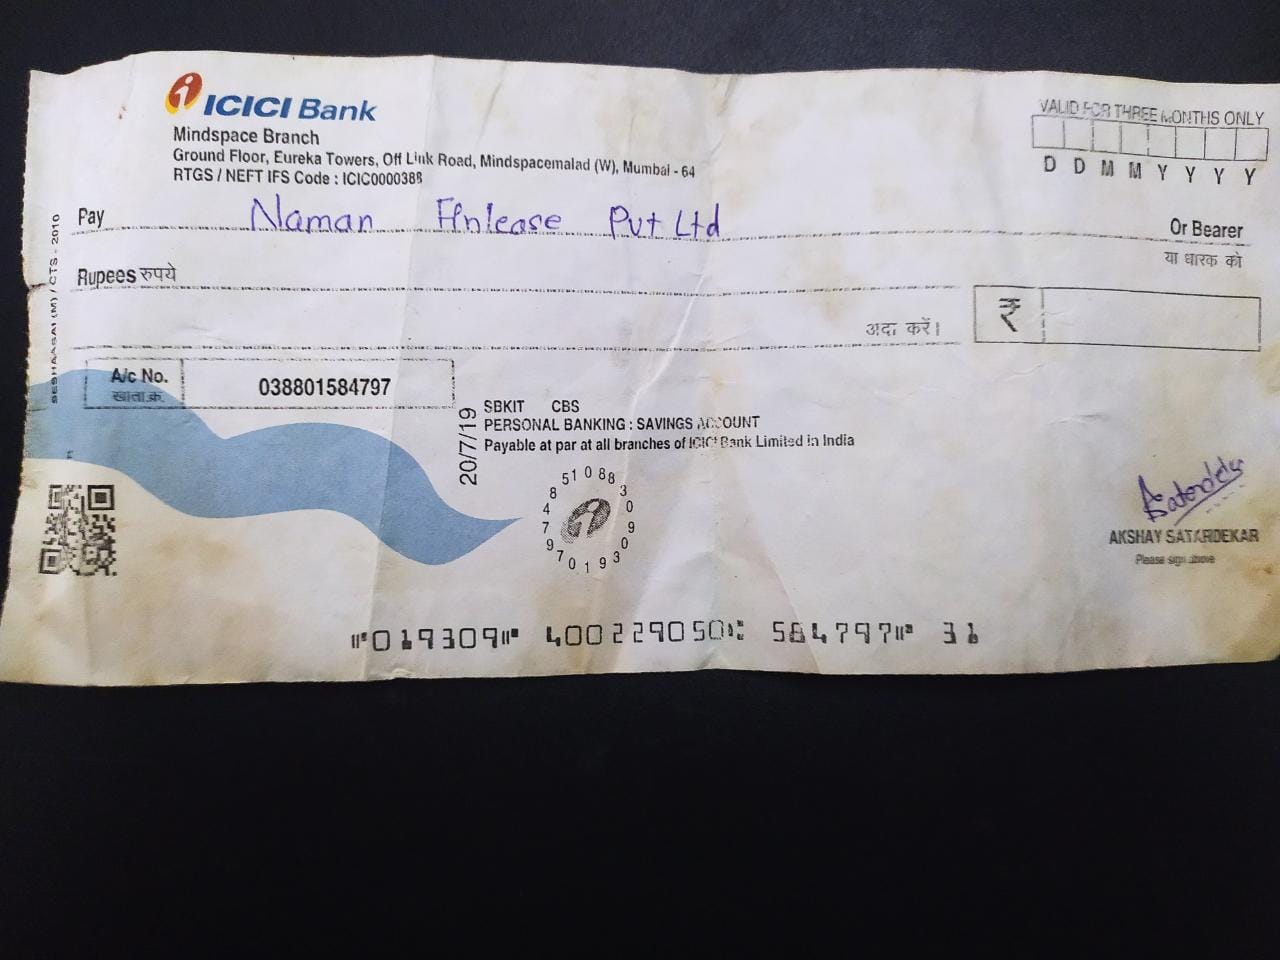 ICICI Bank
Mindspace Branch
Ground Floor, Eureka Towers, Off Link Road, Mindspacemalad (W), Mumbai - 64
RTGS / NEFT IFS Code : ICIC0000388
VALID FOR THREE MONTHS ONLY
D D M M Y Y Y Y
Pay Naman Finlease Pvt Ltd Or Bearer
या धारक को
Rupees रुपये
अदा करें। ₹
SESHAASAI (M) / CTS - 2010
A/c No. 038801584797
खाता क्र.
20/7/19
SBKIT CBS
PERSONAL BANKING : SAVINGS ACCOUNT
Payable at par at all branches of ICICI Bank Limited in India
AKSHAY SATARDEKAR
Please sign above
⑈019309⑈ 400229050⑆ 584797⑈ 31